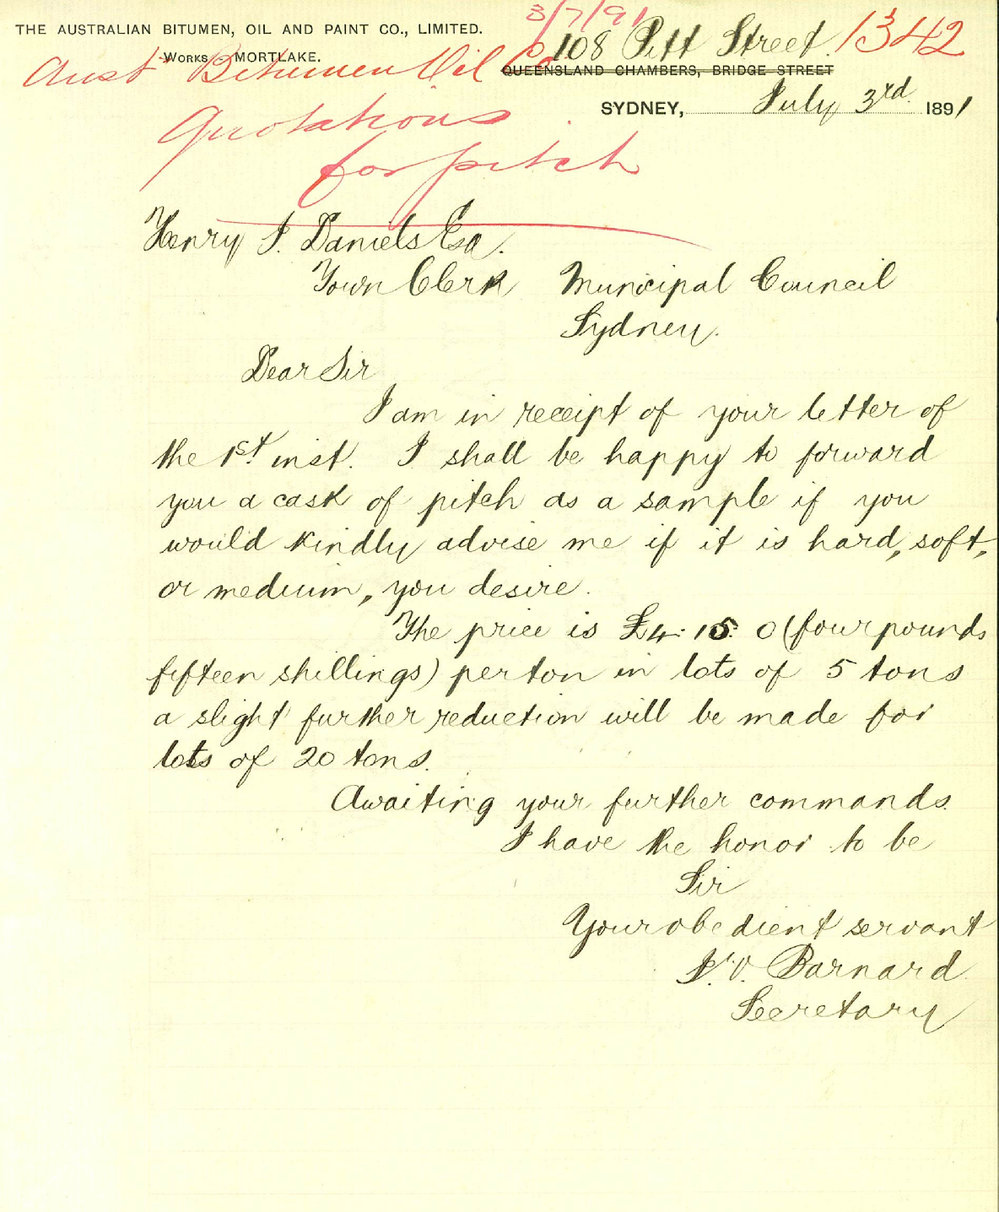 3/7/91
THE AUSTRALIAN BITUMEN, OIL AND PAINT CO., LIMITED.
108 Pitt Street. 1342
Works MORTLAKE.
Aust Bitumen Oil Co
QUEENSLAND CHAMBERS, BRIDGE STREET
SYDNEY, July 3rd 1891
Quotations
for pitch
Henry J. Daniels Esq.
Town Clerk Municipal Council
Sydney.
Dear Sir
I am in receipt of your letter of
the 1st. inst. I shall be happy to forward
you a cask of pitch as a sample if you
would kindly advise me if it is hard, soft,
or medium, you desire.
The price is £4. 15. 0 (four pounds
fifteen shillings) per ton in lots of 5 tons
a slight further reduction will be made for
lots of 20 tons.
Awaiting your further commands.
I have the honor to be
Sir
Your obedient servant
Barnard
Secretary